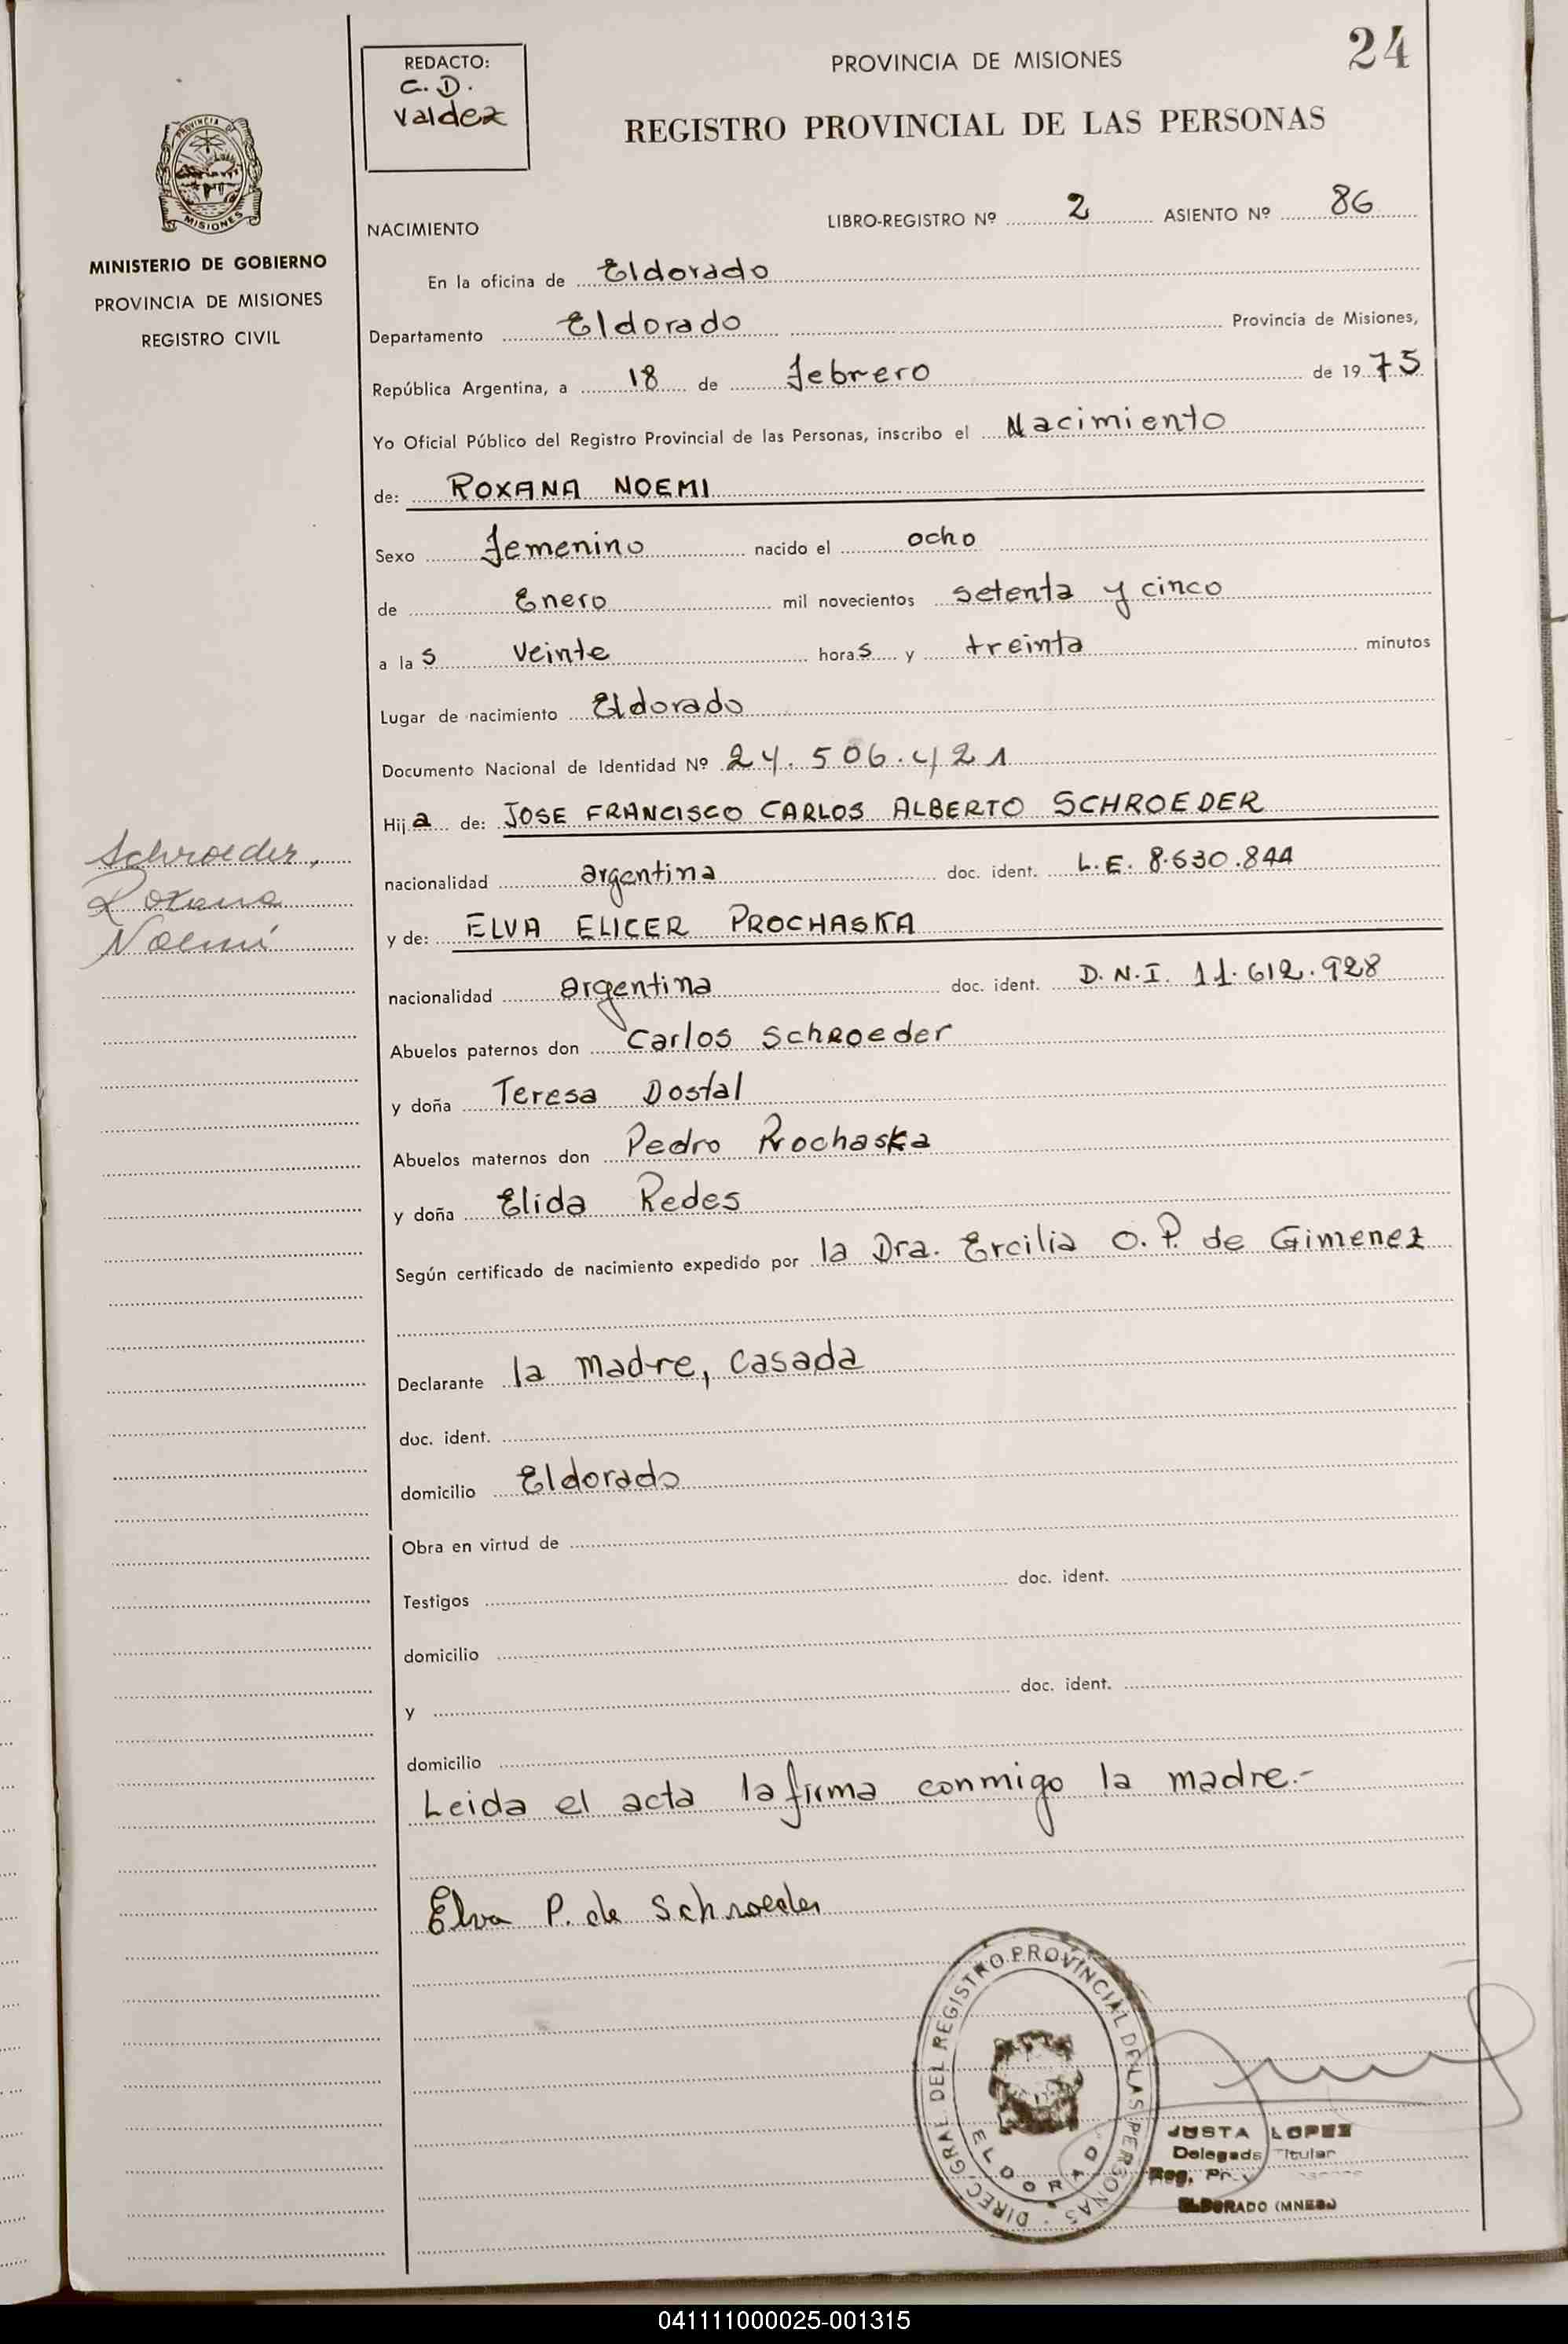 24
REDACTO:
C. D.
Valdez
PROVINCIA DE MISIONES
REGISTRO PROVINCIAL DE LAS PERSONAS
PROVINCIA DE
MISIONES
MINISTERIO DE GOBIERNO
PROVINCIA DE MISIONES
REGISTRO CIVIL
NACIMIENTO LIBRO-REGISTRO Nº 2 ASIENTO Nº 86
En la oficina de Eldorado
Departamento Eldorado Provincia de Misiones,
República Argentina, a 18 de febrero de 19 75
Yo Oficial Público del Registro Provincial de las Personas, inscribo el Nacimiento
de: ROXANA NOEMI
Sexo femenino nacido el ocho
de Enero mil novecientos setenta y cinco
a la s veinte hora s y treinta minutos
Lugar de nacimiento Eldorado
Documento Nacional de Identidad Nº 24.506.421
Hij a de: JOSE FRANCISCO CARLOS ALBERTO SCHROEDER
Schroeder,
Roxana
Noemí
nacionalidad argentina doc. ident. L.E. 8.630.844
y de: ELVA ELICER PROCHASKA
nacionalidad argentina doc. ident. D.N.I. 11.612.928
Abuelos paternos don Carlos Schroeder
y doña Teresa Dostal
Abuelos maternos don Pedro Prochaska
y doña Elida Redes
Según certificado de nacimiento expedido por la Dra. Ercilia O. P. de Gimenez
Declarante la madre, casada
doc. ident.
domicilio Eldorado
Obra en virtud de
Testigos doc. ident.
domicilio
y doc. ident.
domicilio
Leida el acta la firma conmigo la madre.-
Elva P. de Schroeder
DIREC. GRAL. DEL REGISTRO PROVINCIAL DE LAS PERSONAS
ELDORADO
JUSTA LOPEZ
Delegada Titular
Reg.
ELDORADO (MNES.)
041111000025-001315